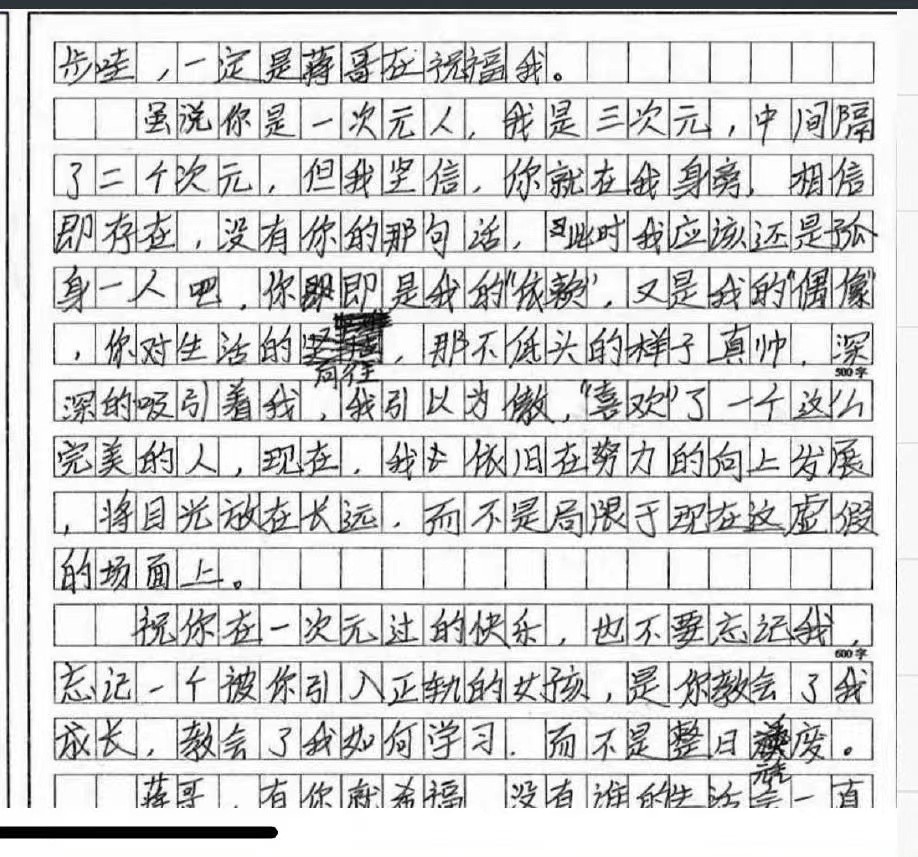 步哇，一定是蒋哥在祝福我。
虽说你是一次元人，我是三次元，中间隔
了二个次元，但我坚信，你就在我身旁，相信
即存在，没有你的那句话，此时我应该还是孤
身一人吧，你即是我的“依赖”，又是我的“偶像”
，你对生活的向往，那不低头的样子真帅，深
500字
深的吸引着我，我引以为傲，“喜欢”了一个这么
完美的人，现在，我也依旧在努力的向上发展
，将目光放在长远，而不是局限于现在这虚假
的场面上。
祝你在一次元过的快乐，也不要忘记我，
600字
忘记一个被你引入正轨的女孩，是你教会了我
成长，教会了我如何学习，而不是整日虚度。
蒋哥，有你就幸福，没有谁的生活会一直